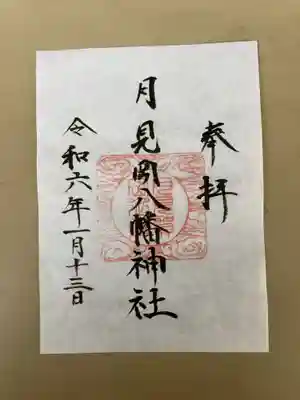 奉拝
月見岡八幡神社
令和六年一月十三日